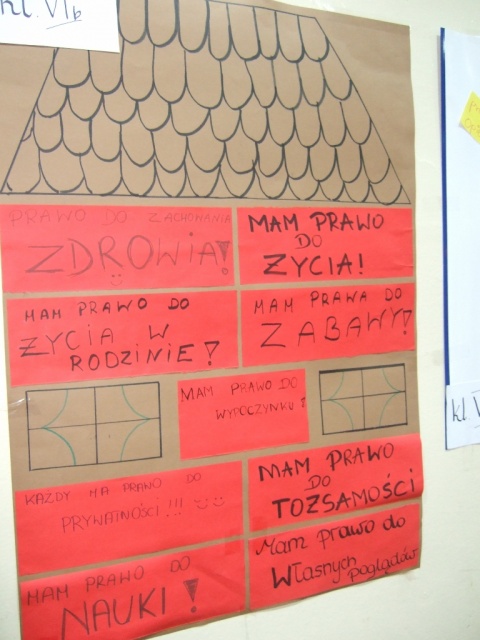 kl. VI b
PRAWO DO ZACHOWANIA
ZDROWIA!
MAM PRAWO
DO
ŻYCIA!
MAM PRAWO DO
ŻYCIA W
RODZINIE!
MAM PRAWA DO
ZABAWY!
MAM PRAWO DO
WYPOCZYNKU!
KAŻDY MA PRAWO DO
PRYWATNOŚCI!!!
MAM PRAWO
DO
TOŻSAMOŚCI
MAM PRAWO DO
NAUKI!
Mam prawo do
Własnych
poglądów
kl V